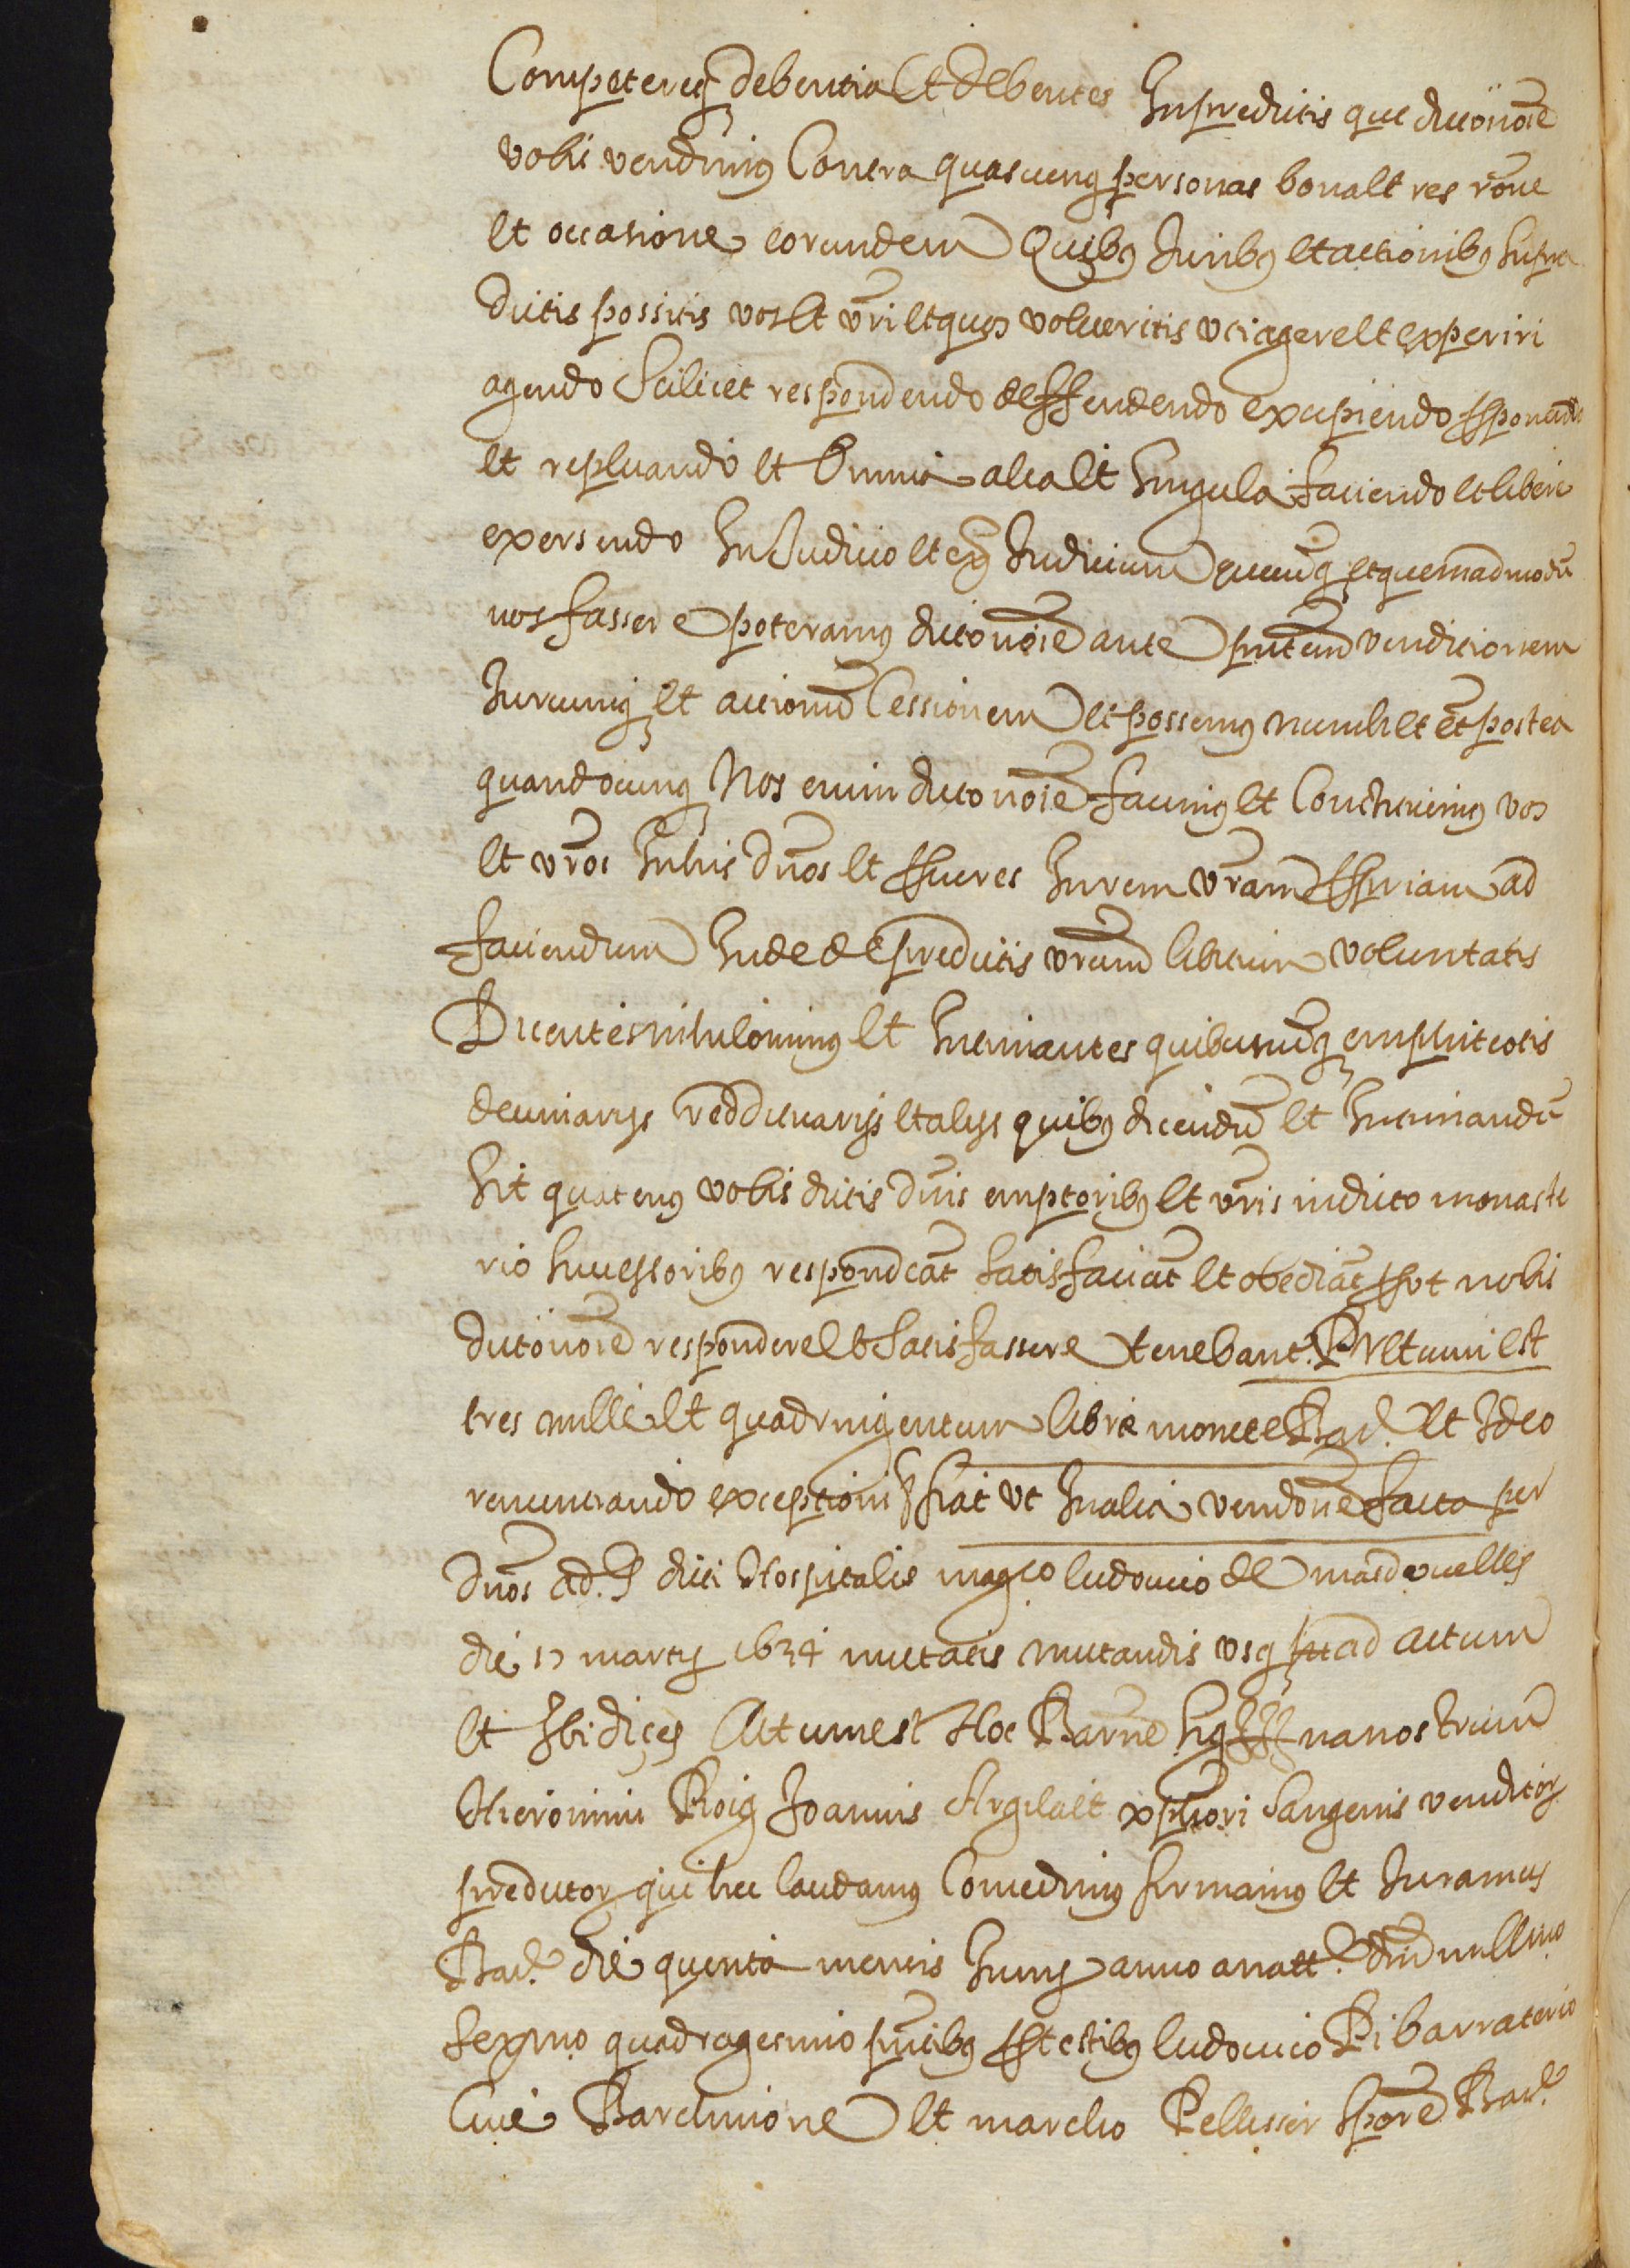 Competereq debentia et debentes In predictis que dicto noie
vobis vendimus Contra quascunq personas bona et res rone
et occasione eorundem Quibus Juribus et actionibus supra
dictis possitis vos et vri et quos volueritis uti agere et experiri
agendo scilicet respondendo deffendendo excipiendo
et replicando et omnia alia et singula faciendo et libere
exersendo In Judicio et ex Judicium et quemadmodu
nos fassere poteramus dicto noie ante pntem venditionem
Juriumq et actionu Cessionem et possemus nunc et et postea
quandocunq Nos enim dicto noie facimus et Constituimus vos
et vros In his dnos et Inrem vram ppriam ad
faciendum Inde de predictis vram libitum voluntatis
Dicentes nihilominus et Intimantes quibuscuq emphiteotis
decimarijs reddituarijs et alijs quibus dicendu et Intimandu
sit quatenus vobis dictis dnis emptoribus et vris in dicto monaste
rio successoribus respondeat satisfaciat et obediat put nobis
dicto noie respondere et satisfassere tenebant. Pretium est
tres mille et quadringentum libre monete Bar.ᵉ et Ideo
renuntiando exceptioni fiat ut In alia vendone facta per
dnos ad. dicti Hospitalis magco ludovico de masdovelles
die 17 martij 1634 mutatis mutandis usq ad actum
et Ibi dices Actum est Hoc Barne na nostrum
Hieronimi Roig Joannis Argila et xpfori Sangenis venditor
predictor qui hec laudamus Concedimus firmamus et Juramus
Bar.ᵉ die quinta mensis Junij anno a natt.ᵉ dni millmo
sexmo quadragesimo pntibus testibus ludovico Ribarraterio
Cive Barchinone et marcho Pellisser Bar.ᵉ